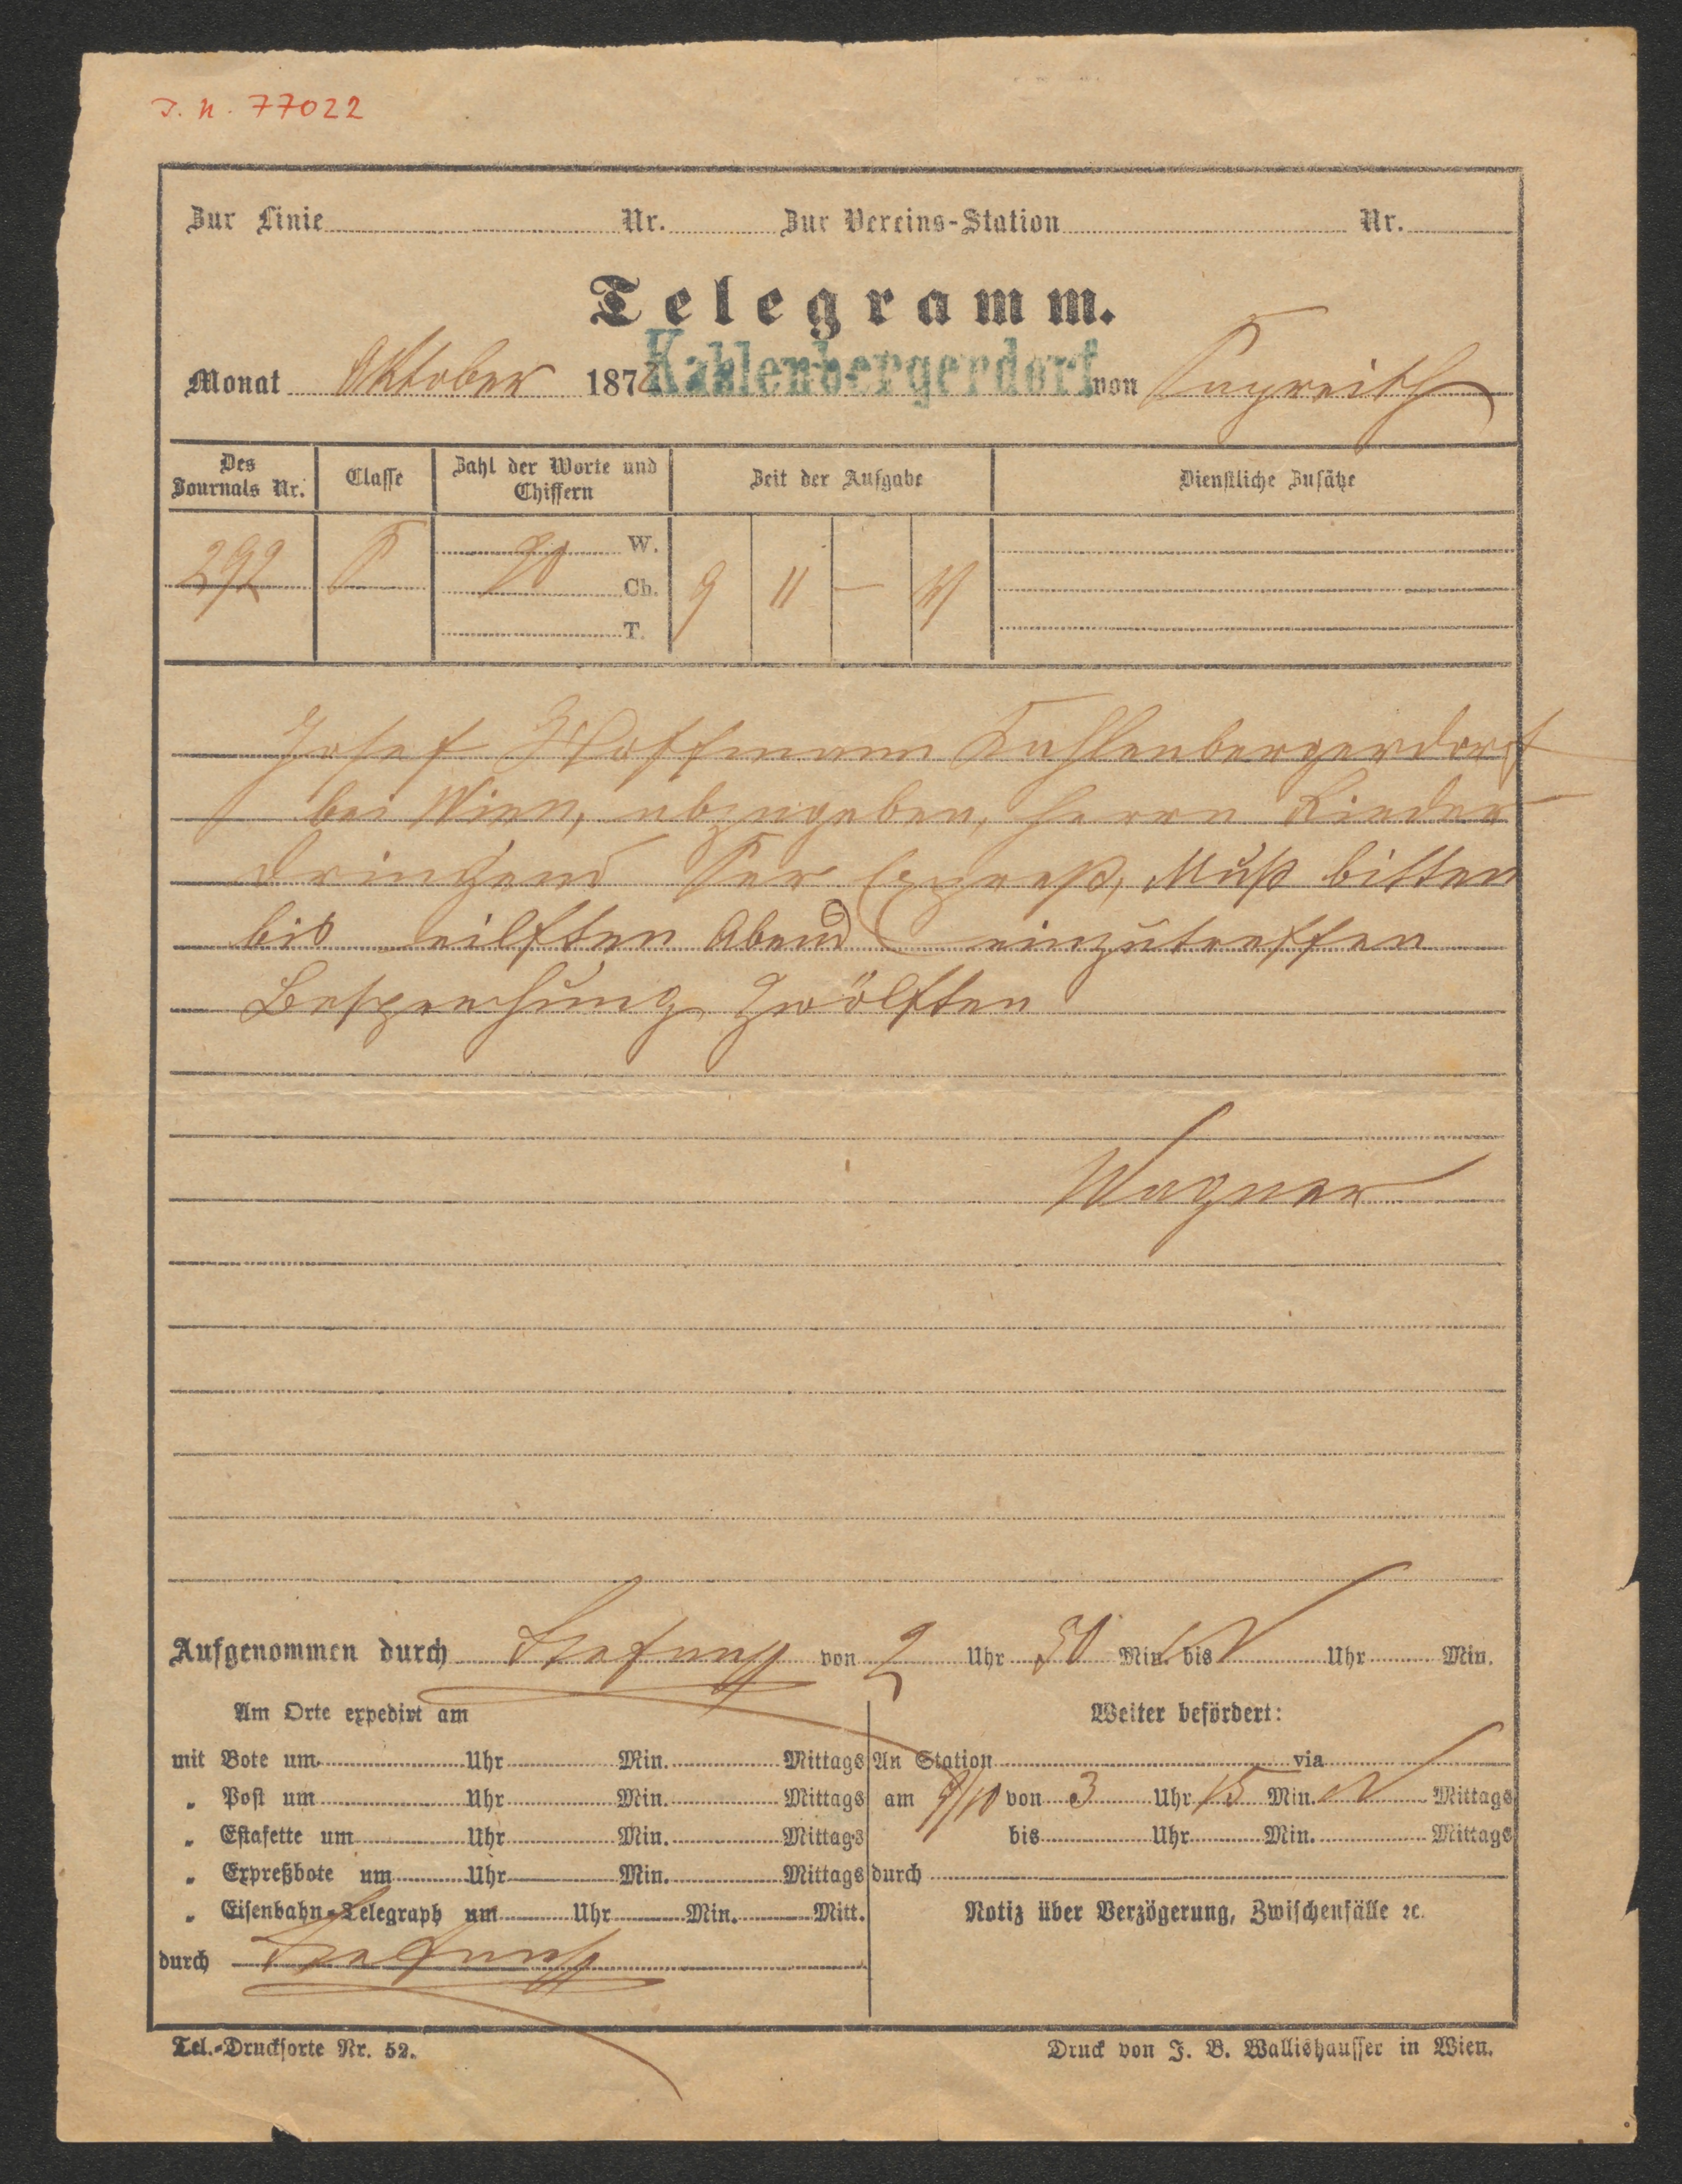 J. N. 77022
Zur Linie Nr. Zur Vereins-Station Nr.
Telegramm.
Monat Oktober 187 Kahlenbergerdorf von Bayreith
Des Journals Nr. Classe Zahl der Worte und Chiffern Zeit der Aufgabe Dienstliche Zusätze
292 W.
Ch. 9 11 —
T.
Josef Hoffmann Kahlenbergerdorf
bei Wien, abzugeben, Herrn Rieder
dringend Per Expreß, Muß bitten
bis eilften Abend einzutreffen
Besprechung Zwölften
Wagner
Aufgenommen durch von 2 Uhr 50 Min. bis Uhr Min.
Am Orte expedirt am
mit Bote um Uhr Min. Mittags
„ Post um Uhr Min. Mittags
„ Estafette um Uhr Min. Mittags
„ Expreßbote um Uhr Min. Mittags
„ Eisenbahn-Telegraph um Uhr Min. Mitt.
durch
Weiter befördert:
An Station via
am 9/10 von 3 Uhr 15 Min. N Mittags
bis Uhr Min. Mittags
durch
Notiz über Verzögerung, Zwischenfälle ꝛc.
Tel.-Drucksorte Nr. 52.
Druck von J. B. Wallishausser in Wien.